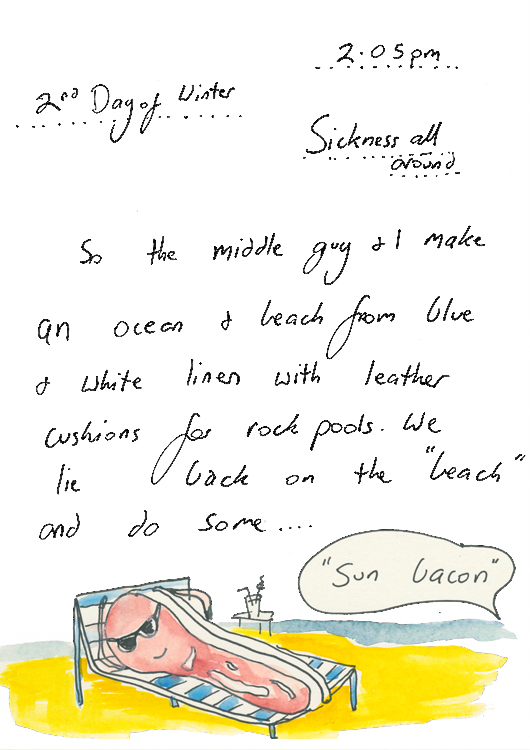 2.05pm
2nd Day of Winter
Sickness all
around
So the middle guy & I make
an ocean & beach from blue
& white linen with leather
cushions for rock pools. We
lie back on the "beach"
and do some....
"Sun bacon"